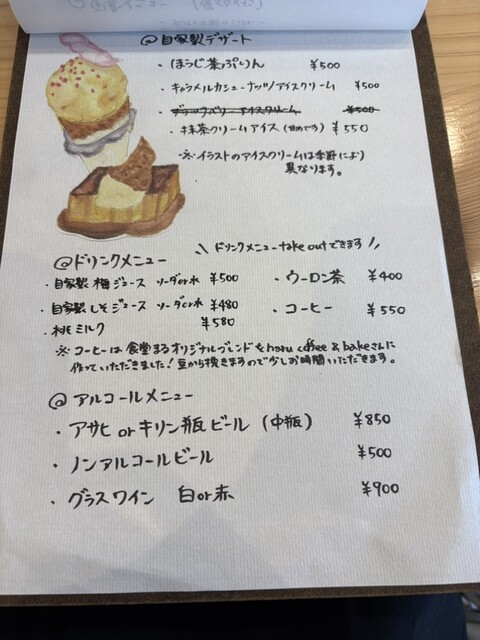 @自家製デザート
・ほうじ茶ぷりん ¥500
・キャラメルカシューナッツアイスクリーム ¥500
・ブラックベリーアイスクリーム ¥500
・抹茶クリームアイス(甘めです) ¥550
※イラストのアイスクリームは季節により
異なります。
@ドリンクメニュー \\ドリンクメニューtake outできます//
・自家製 梅ジュース ソーダor水 ¥500
・ウーロン茶 ¥400
・自家製 しそジュース ソーダor水 ¥480
・コーヒー ¥550
・桃ミルク ¥580
※コーヒーは食堂まるオリジナルブレンドをharu coffee & bakeさんに
作っていただきました!豆から挽きますので少しお時間いただきます。
@ アルコールメニュー
・アサヒorキリン瓶ビール (中瓶) ¥850
・ノンアルコールビール ¥500
・グラスワイン 白or赤 ¥900